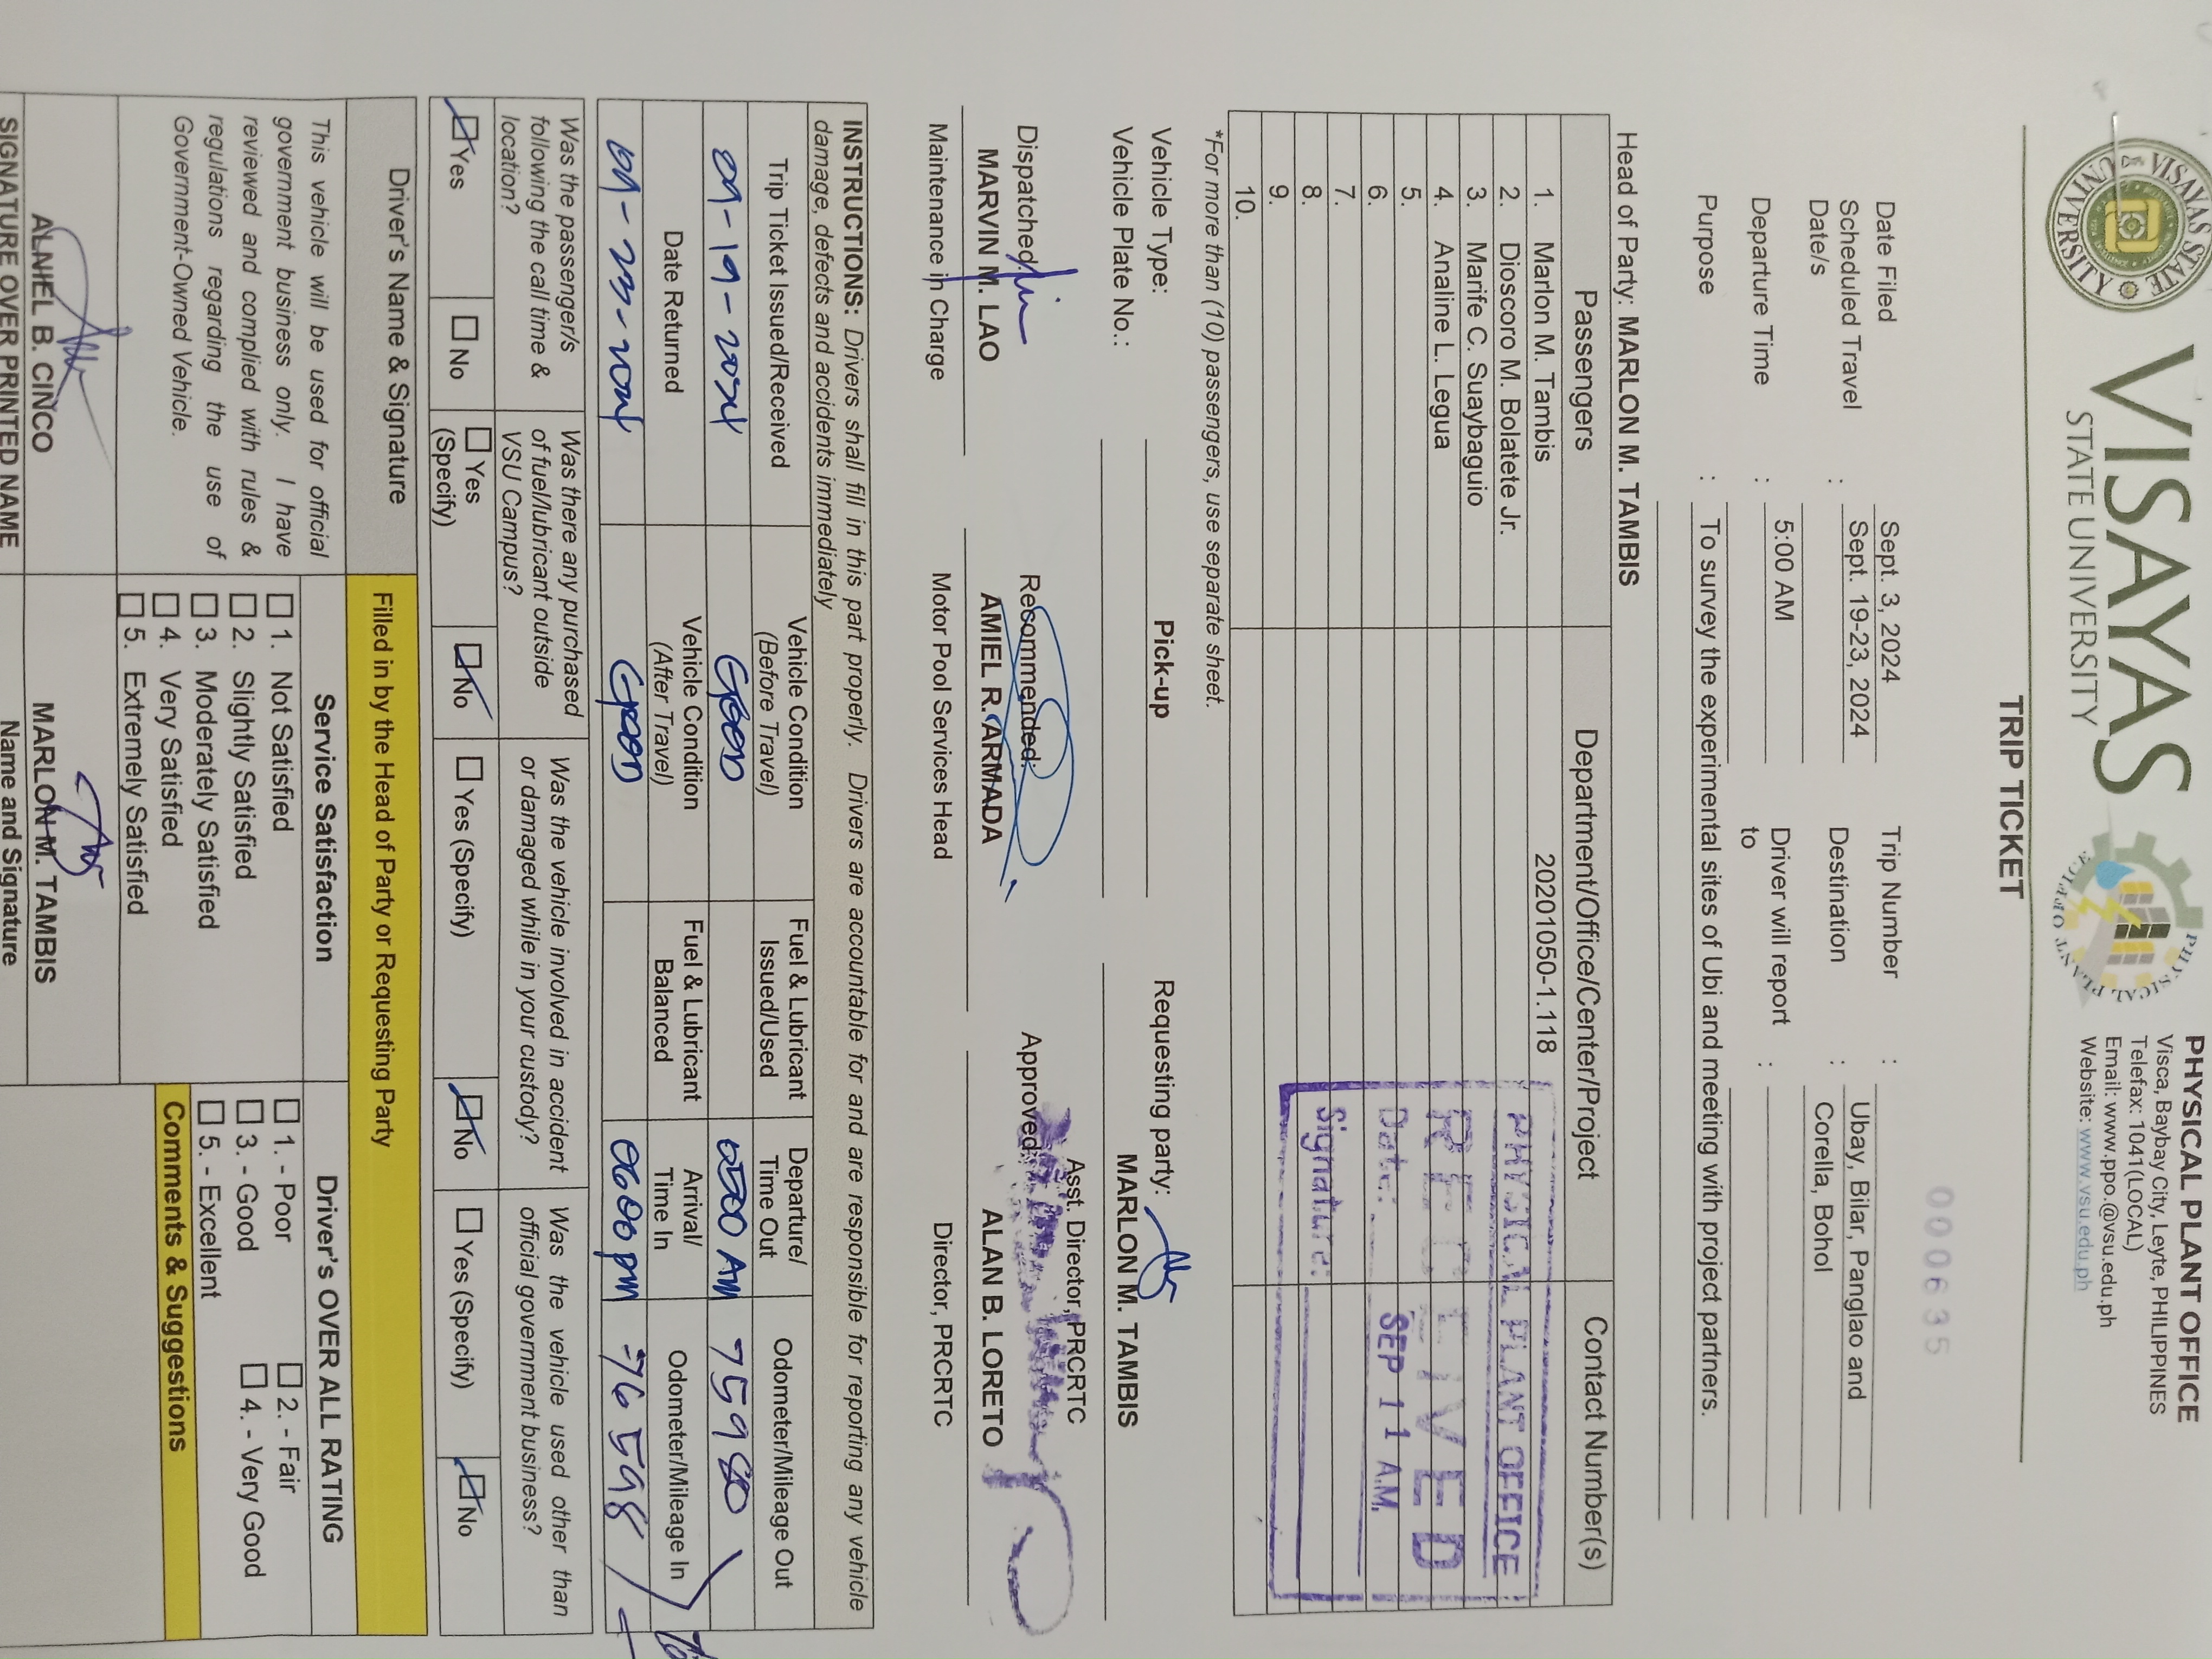 VISAYAS
STATE UNIVERSITY
VISAYAS STATE UNIVERSITY
PHYSICAL PLANT OFFICE
PHYSICAL PLANT OFFICE
Visca, Baybay City, Leyte, PHILIPPINES
Telefax: 1041(LOCAL)
Email: www.ppo.@vsu.edu.ph
Website: www.vsu.edu.ph
TRIP TICKET
000635
Date Filed : Sept. 3, 2024 Trip Number :
Scheduled Travel Date/s : Sept. 19-23, 2024 Destination : Ubay, Bilar, Panglao and Corella, Bohol
Departure Time : 5:00 AM Driver will report to :
Purpose : To survey the experimental sites of Ubi and meeting with project partners.
Head of Party: MARLON M. TAMBIS
Passengers Department/Office/Center/Project Contact Number(s)
1. Marlon M. Tambis 20201050-1.118
2. Dioscoro M. Bolatete Jr.
3. Marife C. Suaybaguio
4. Analine L. Legua
5.
6.
7.
8.
9.
10.
PHYSICAL PLANT OFFICE
RECEIVED
Date: SEP 11 A.M.
Signature:
*For more than (10) passengers, use separate sheet.
Vehicle Type: Pick-up Requesting party:
Vehicle Plate No.: MARLON M. TAMBIS
Asst. Director, PRCRTC
Dispatched: Recommended: Approved:
MARVIN M. LAO AMIEL R. ARMADA ALAN B. LORETO
Maintenance in Charge Motor Pool Services Head Director, PRCRTC
INSTRUCTIONS: Drivers shall fill in this part properly. Drivers are accountable for and are responsible for reporting any vehicle
damage, defects and accidents immediately
Trip Ticket Issued/Received Vehicle Condition (Before Travel) Fuel & Lubricant Issued/Used Departure/ Time Out Odometer/Mileage Out
09-19-2024 GOOD 0500 AM 75980
Date Returned Vehicle Condition (After Travel) Fuel & Lubricant Balanced Arrival/ Time In Odometer/Mileage In
09-23-2024 GOOD 0600 pm 76598
Was the passenger/s following the call time & location?
Was there any purchased of fuel/lubricant outside VSU Campus?
Was the vehicle involved in accident or damaged while in your custody?
Was the vehicle used other than official government business?
Yes No Yes (Specify) No Yes (Specify) No Yes (Specify) No
Driver's Name & Signature Filled in by the Head of Party or Requesting Party
Service Satisfaction Driver's OVER ALL RATING
This vehicle will be used for official
government business only. I have
reviewed and complied with rules &
regulations regarding the use of
Government-Owned Vehicle.
1. Not Satisfied
2. Slightly Satisfied
3. Moderately Satisfied
4. Very Satisfied
5. Extremely Satisfied
1. - Poor 2. - Fair
3. - Good 4. - Very Good
5. - Excellent
Comments & Suggestions
ALNIEL B. CINCO MARLON M. TAMBIS
SIGNATURE OVER PRINTED NAME Name and Signature